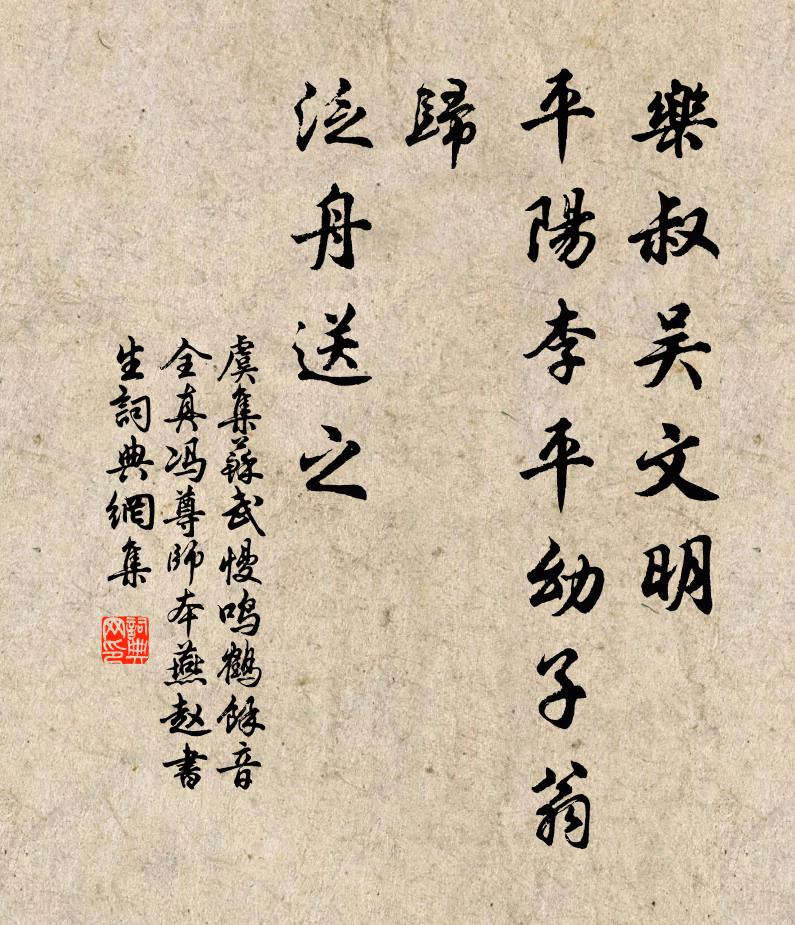 樂叔吴文明
平陽李平幼子翁
歸
泛舟送之
虞集蘇武慢鳴鶴餘音
全真冯尊師本燕赵書
生詞典網集
詞典网印